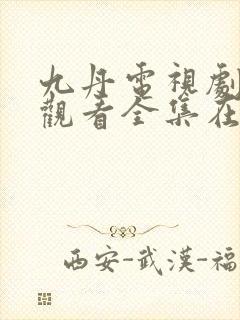 九丹電視劇
觀看全集在
西安-武漢-福